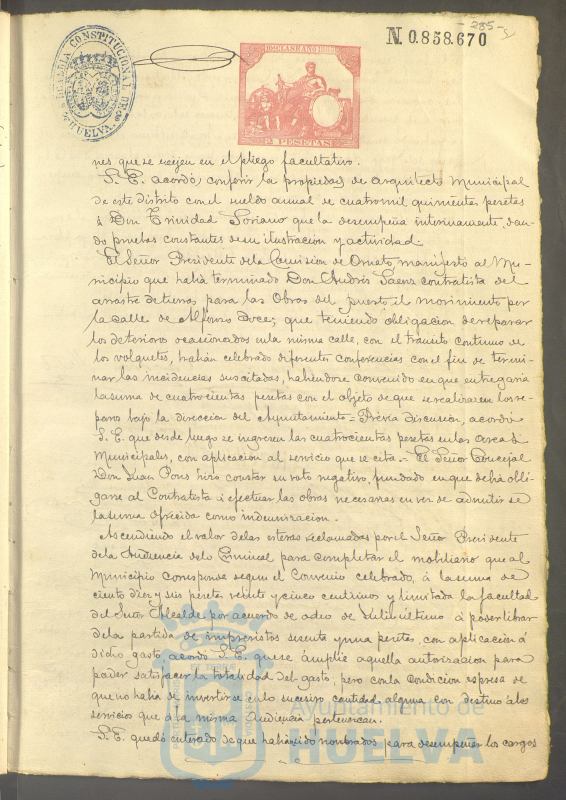 - 285 -
N. 0.858.670
ALCALDIA CONSTITUCIONAL DE HUELVA
2 PESETAS
nes que se exijen en el pliego facultativo.
S. E. acordó, conferir la propiedad de Arquitecto Municipal
de este distrito con el sueldo anual de cuatro mil quinientas pesetas
á Don Trinidad Soriano que la desempeña interinamente, dan-
do pruebas constantes de su ilustracion y actividad.
El Señor Presidente de la Comision de Ornato, manifestó al Mu-
nicipio que habia terminado Don Andrés Saenz contratista del
arrastre de tierras para las Obras del puerto, el movimiento por
la calle de Alfonso doce; que teniendo obligacion de reparar
los deterioros ocasionados en la misma calle, con el tránsito contínuo de
los volquetes, habian celebrado diferentes conferencias con el fin de termi-
nar las incidencias suscitadas, habiendose convenido en que entregaria
la suma de cuatrocientas pesetas con el objeto de que se realizasen los re-
paros bajo la direccion del Ayuntamiento = Prévia discusion, acordó
S. E. que desde luego se ingresen las cuatrocientas pesetas en las arcas
Municipales, con aplicacion al servicio que se cita. - El Señor Concejal
Don Juan Pons hizo constar su voto negativo, fundado en que debia obli-
garse al Contratista á efectuar las obras necesarias en vez de admitirse
la suma ofrecida como indemnizacion.
Ascendiendo el valor de las esteras reclamadas por el Señor Presidente
de la Audiencia de lo Criminal para completar el mobiliario que al
Municipio corresponde segun el Convenio celebrado, á la suma de
ciento diez y seis pesetas veinte y cinco centimos y limitada la facultad
del Señor Alcalde por acuerdo de de Julio último á poder librar
de la partida de imprevistos sesenta y una pesetas, con aplicacion á
dicho gasto acordó S. E. que se ámplie aquella autorizacion para
poder satisfacer la totalidad del gasto; pero con la condicion espresa de
que no habia de invertirse en lo sucesivo cantidad alguna con destino á los
servicios que á la misma Audiencia pertenezcan.
S. E. quedó enterado de que habian sido nombrados para desempeñar los cargos
Ayuntamiento de
HUELVA